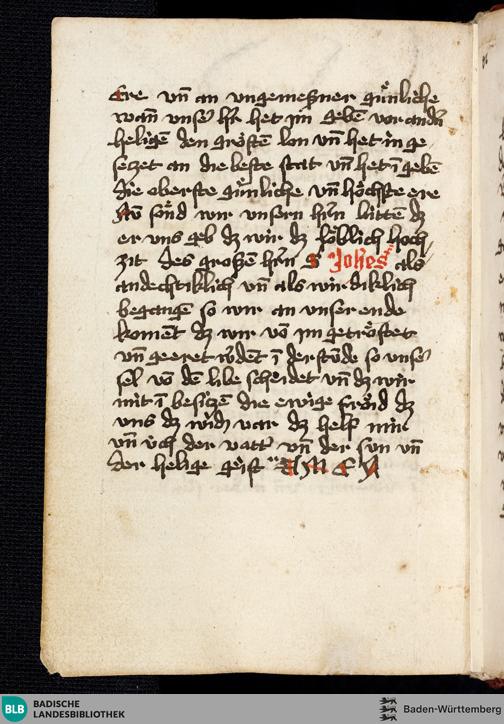 Ere vn̄ an vngemeßner gúnliche
wan̄ vnser hr̄ het im geben vor andn̄
heligē den grösten lon vn̄ het in ge
setzet an die beste stat vn̄ het ī gebē
die oberste gúnliche vn̄ höchste ere
Nv̄ sönd wir vnsern hr̄n bitten dz
er vns geb dz wir dz löblich hoch
zit des großen hr̄n S Johes als
andechtiklich vn̄ als wirdiklich
begangē so wir an vnser ende
koment dz wir vō im getröstet
vn̄ geeret w̄dent ī der stūde so vnser
sel vō dē libe scheidet vn̄ dz wir
mit ī besitzē die ewige fröid dz
vns dz wid̄ var dz helf mir
vn̄ úch der vatt̄ vn̄ der sun vn̄
der helige geist AMEN
BLB
BADISCHE
LANDESBIBLIOTHEK
Baden-Württemberg